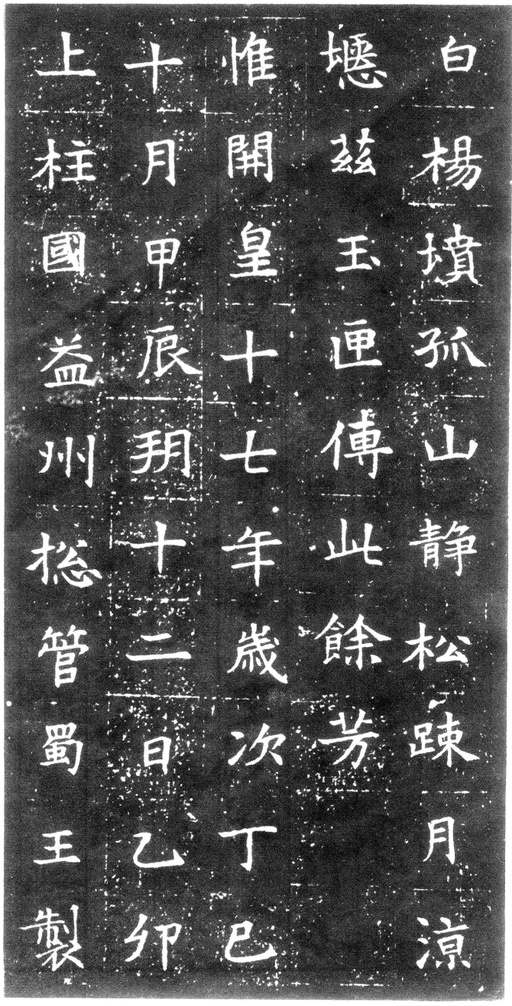 白楊墳孤山静松踈月涼
壋兹玉匣傅此餘芳
惟開皇十七年歲次丁巳
十月甲辰朔十二日乙卯
上柱國益州揔管蜀王製